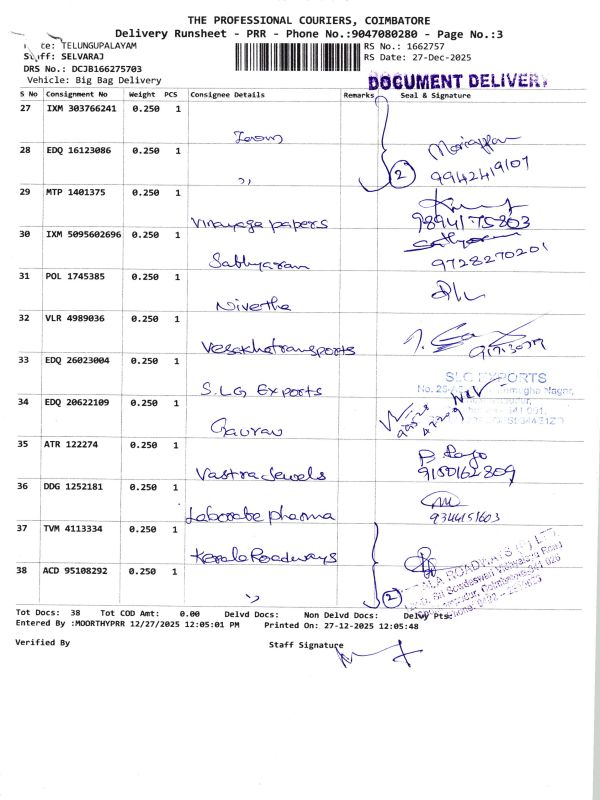 THE PROFESSIONAL COURIERS, COIMBATORE
Delivery Runsheet - PRR - Phone No.:9047080280 - Page No.:3
TELUNGUPALAYAM RS No.: 1662757
Staff: SELVARAJ RS Date: 27-Dec-2025
DRS No.: DCJB166275703
Vehicle: Big Bag Delivery DOCUMENT DELIVERY
S No Consignment No Weight PCS Consignee Details Remarks Seal & Signature
27 IXM 303766241 0.250 1
28 EDQ 16123086 0.250 1 2 9942419107
29 MTP 1401375 0.250 1 Vinayaga papers 9894175803
30 IXM 5095602696 0.250 1 Sathyaran 9728270201
31 POL 1745385 0.250 1 Nivetha
32 VLR 4989036 0.250 1 Vesakhatransports
33 EDQ 26023004 0.250 1 S.LG Exports SLG EXPORTS
34 EDQ 20622109 0.250 1 Gaurav
35 ATR 122274 0.250 1 Vastra Jewels 9150162809
36 DDG 1252181 0.250 1 pharma 9344151603
37 TVM 4113334 0.250 1 Kerala Roadways
38 ACD 95108292 0.250 1 ,, 2
Tot Docs: 38 Tot COD Amt: 0.00 Delvd Docs: Non Delvd Docs: Delvy Pts:
Entered By :MOORTHYPRR 12/27/2025 12:05:01 PM Printed On: 27-12-2025 12:05:48
Verified By Staff Signature